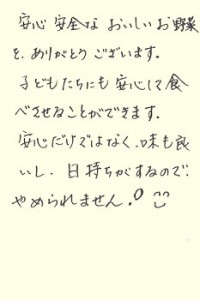 安心 安全な おいしいお野菜
を、ありがとうございます。
子どもたちにも安心して食
べさせることができます。
安心だけではなく、味も良
いし、日持ちがするので、
やめられません!